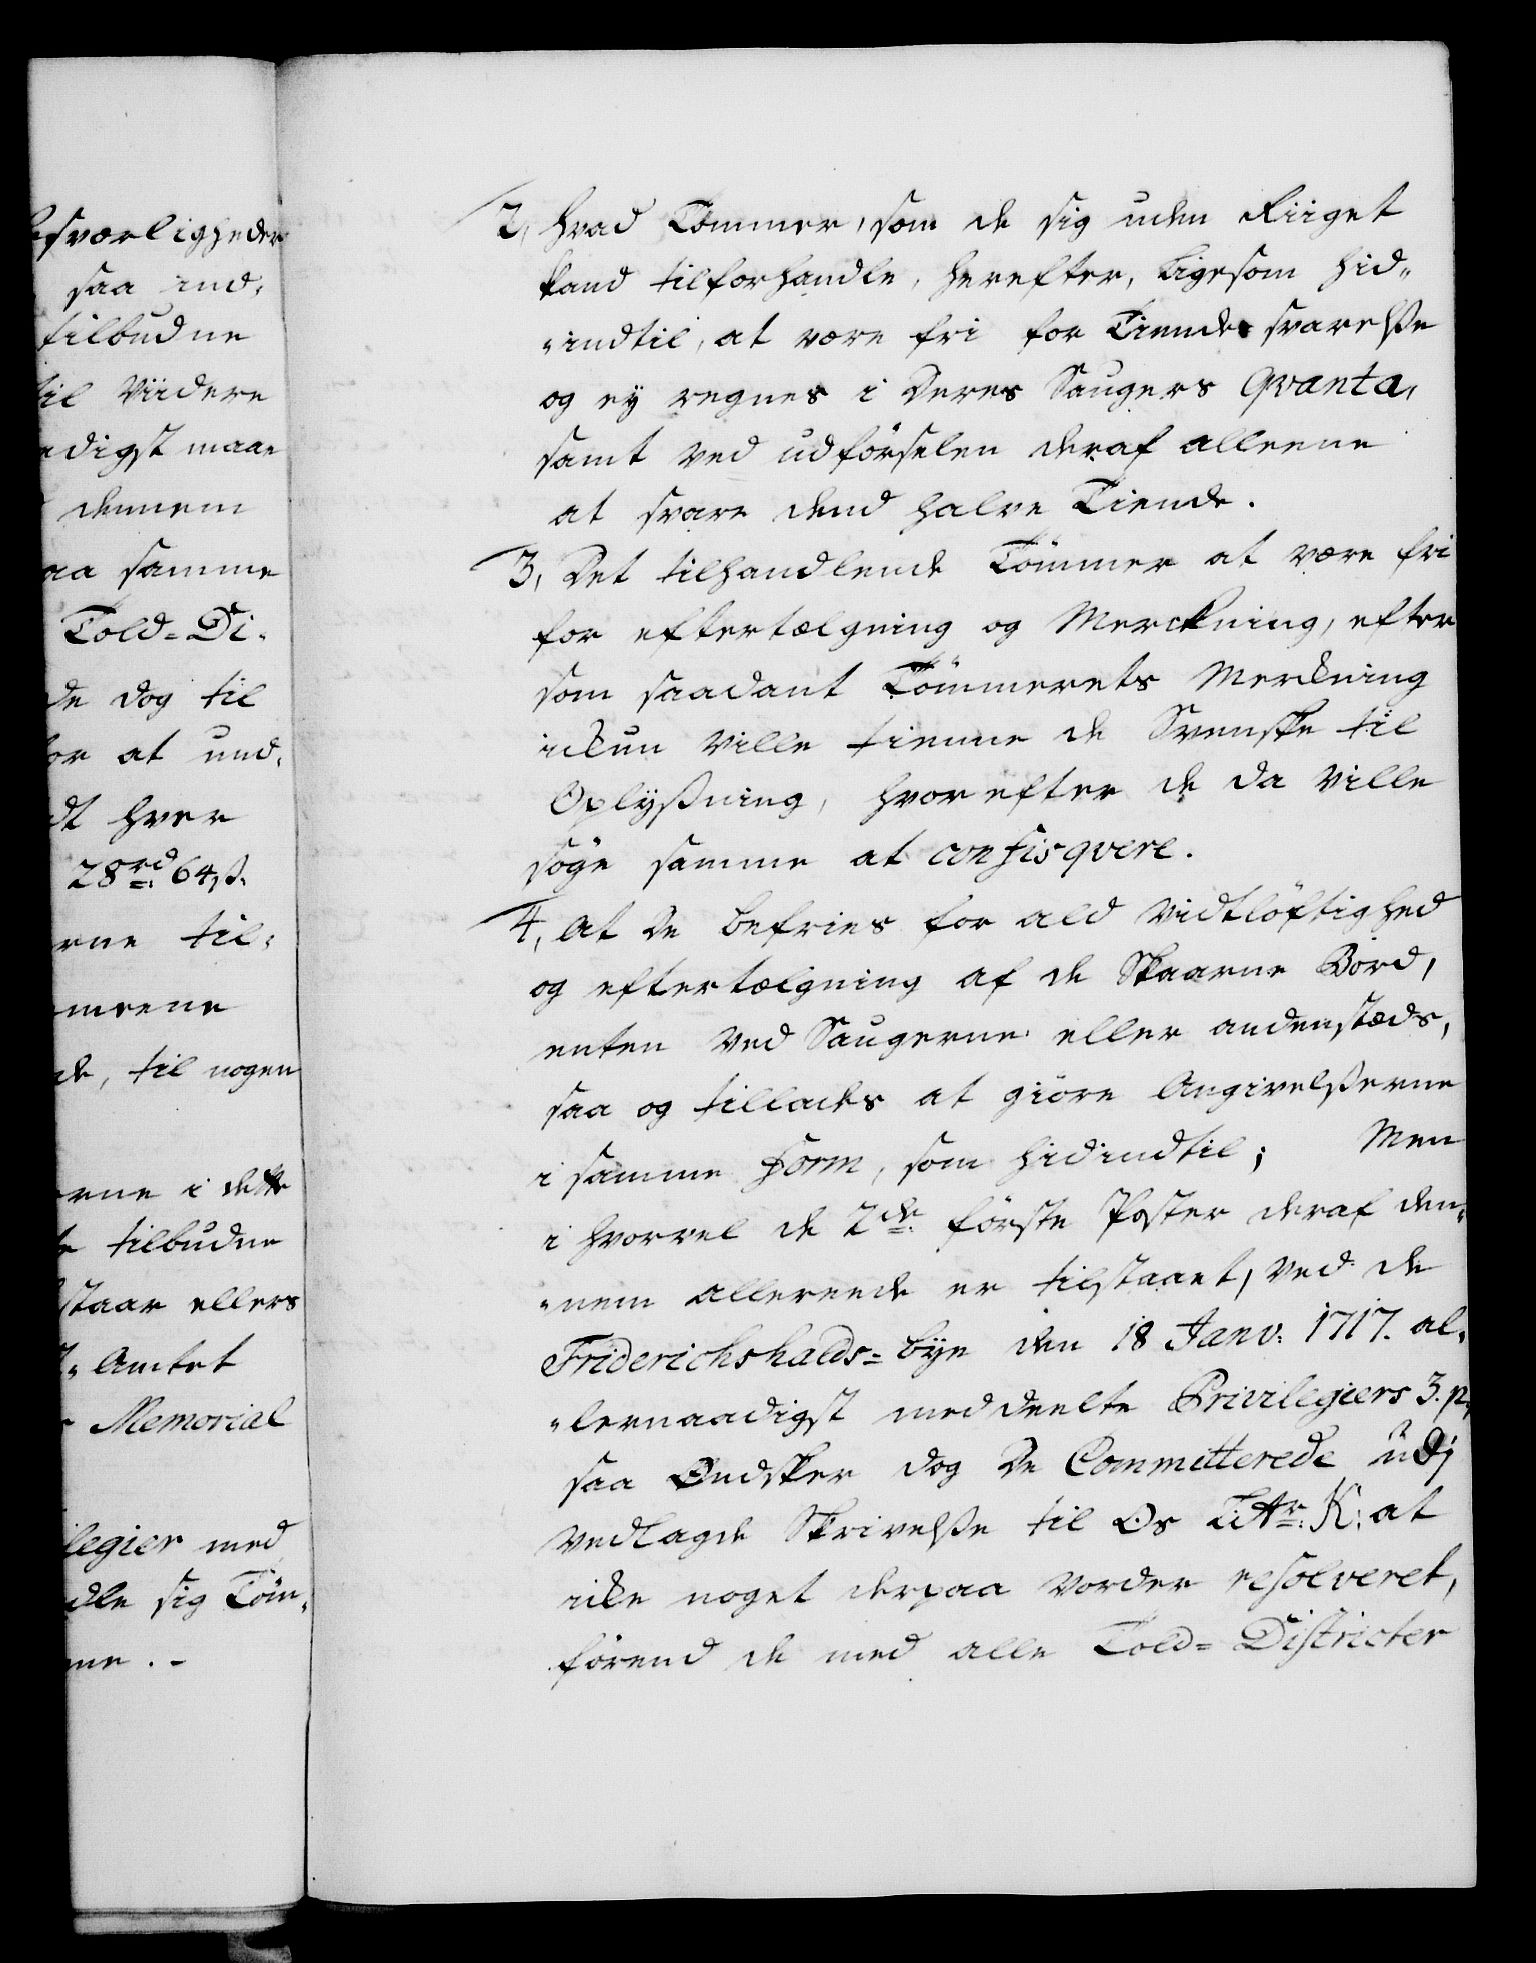 esværligheder
saa ind,
tilbudne
til Viidere
adigst maae
dennem
aa samme
Told=Di,
de dog til
for at und,
dt hver
28 rd: 64 ß.
rne til,
de, til nogen
rne i dette
tilbudne
staar ellers
Amtet
Memorial
legier med
dle sig Töm,
ne. -
2, Hvad Tömmer, som de sig uden Riiget
kand tilforhandle, herefter, ligesom hid„
„indtil, at være fri for Tiende svarelße
og ey regnes i deres Saugers Qvanta,
samt ved udförselen deraf alleene
at svare dend halve Tiende.
3, Det tilhandlende Tömmer at være fri
for eftertælgning og Merckning, efter
som saadant Tömmerets Merckning
ickun ville tienne de Svenske til
Oplysßning, hvorefter de da ville
söge samme at confisqvere.
4, At De befries for ald Vidtlöftighed
og eftertælgning af de Skaarne Bord,
enten ved Saugerne eller andenstæds,
saa og tillades at giöre Angivelßerne
i samme Form, som hidindtil; Men
i hvorvel de 2de förste Poster deraf den„
„nem allereede er tilstaaet, ved de
Friderichshalds= bye den 18 Janv: 1717. al„
„lernaadigst meddeelte Privilegiers 3. p,
saa Øndsker dog De Committerede udj
Vedlagde Skrivelße til Os Littr: K: at
icke noget derpaa vorder resolveret,
förend de med alle Told= Districter